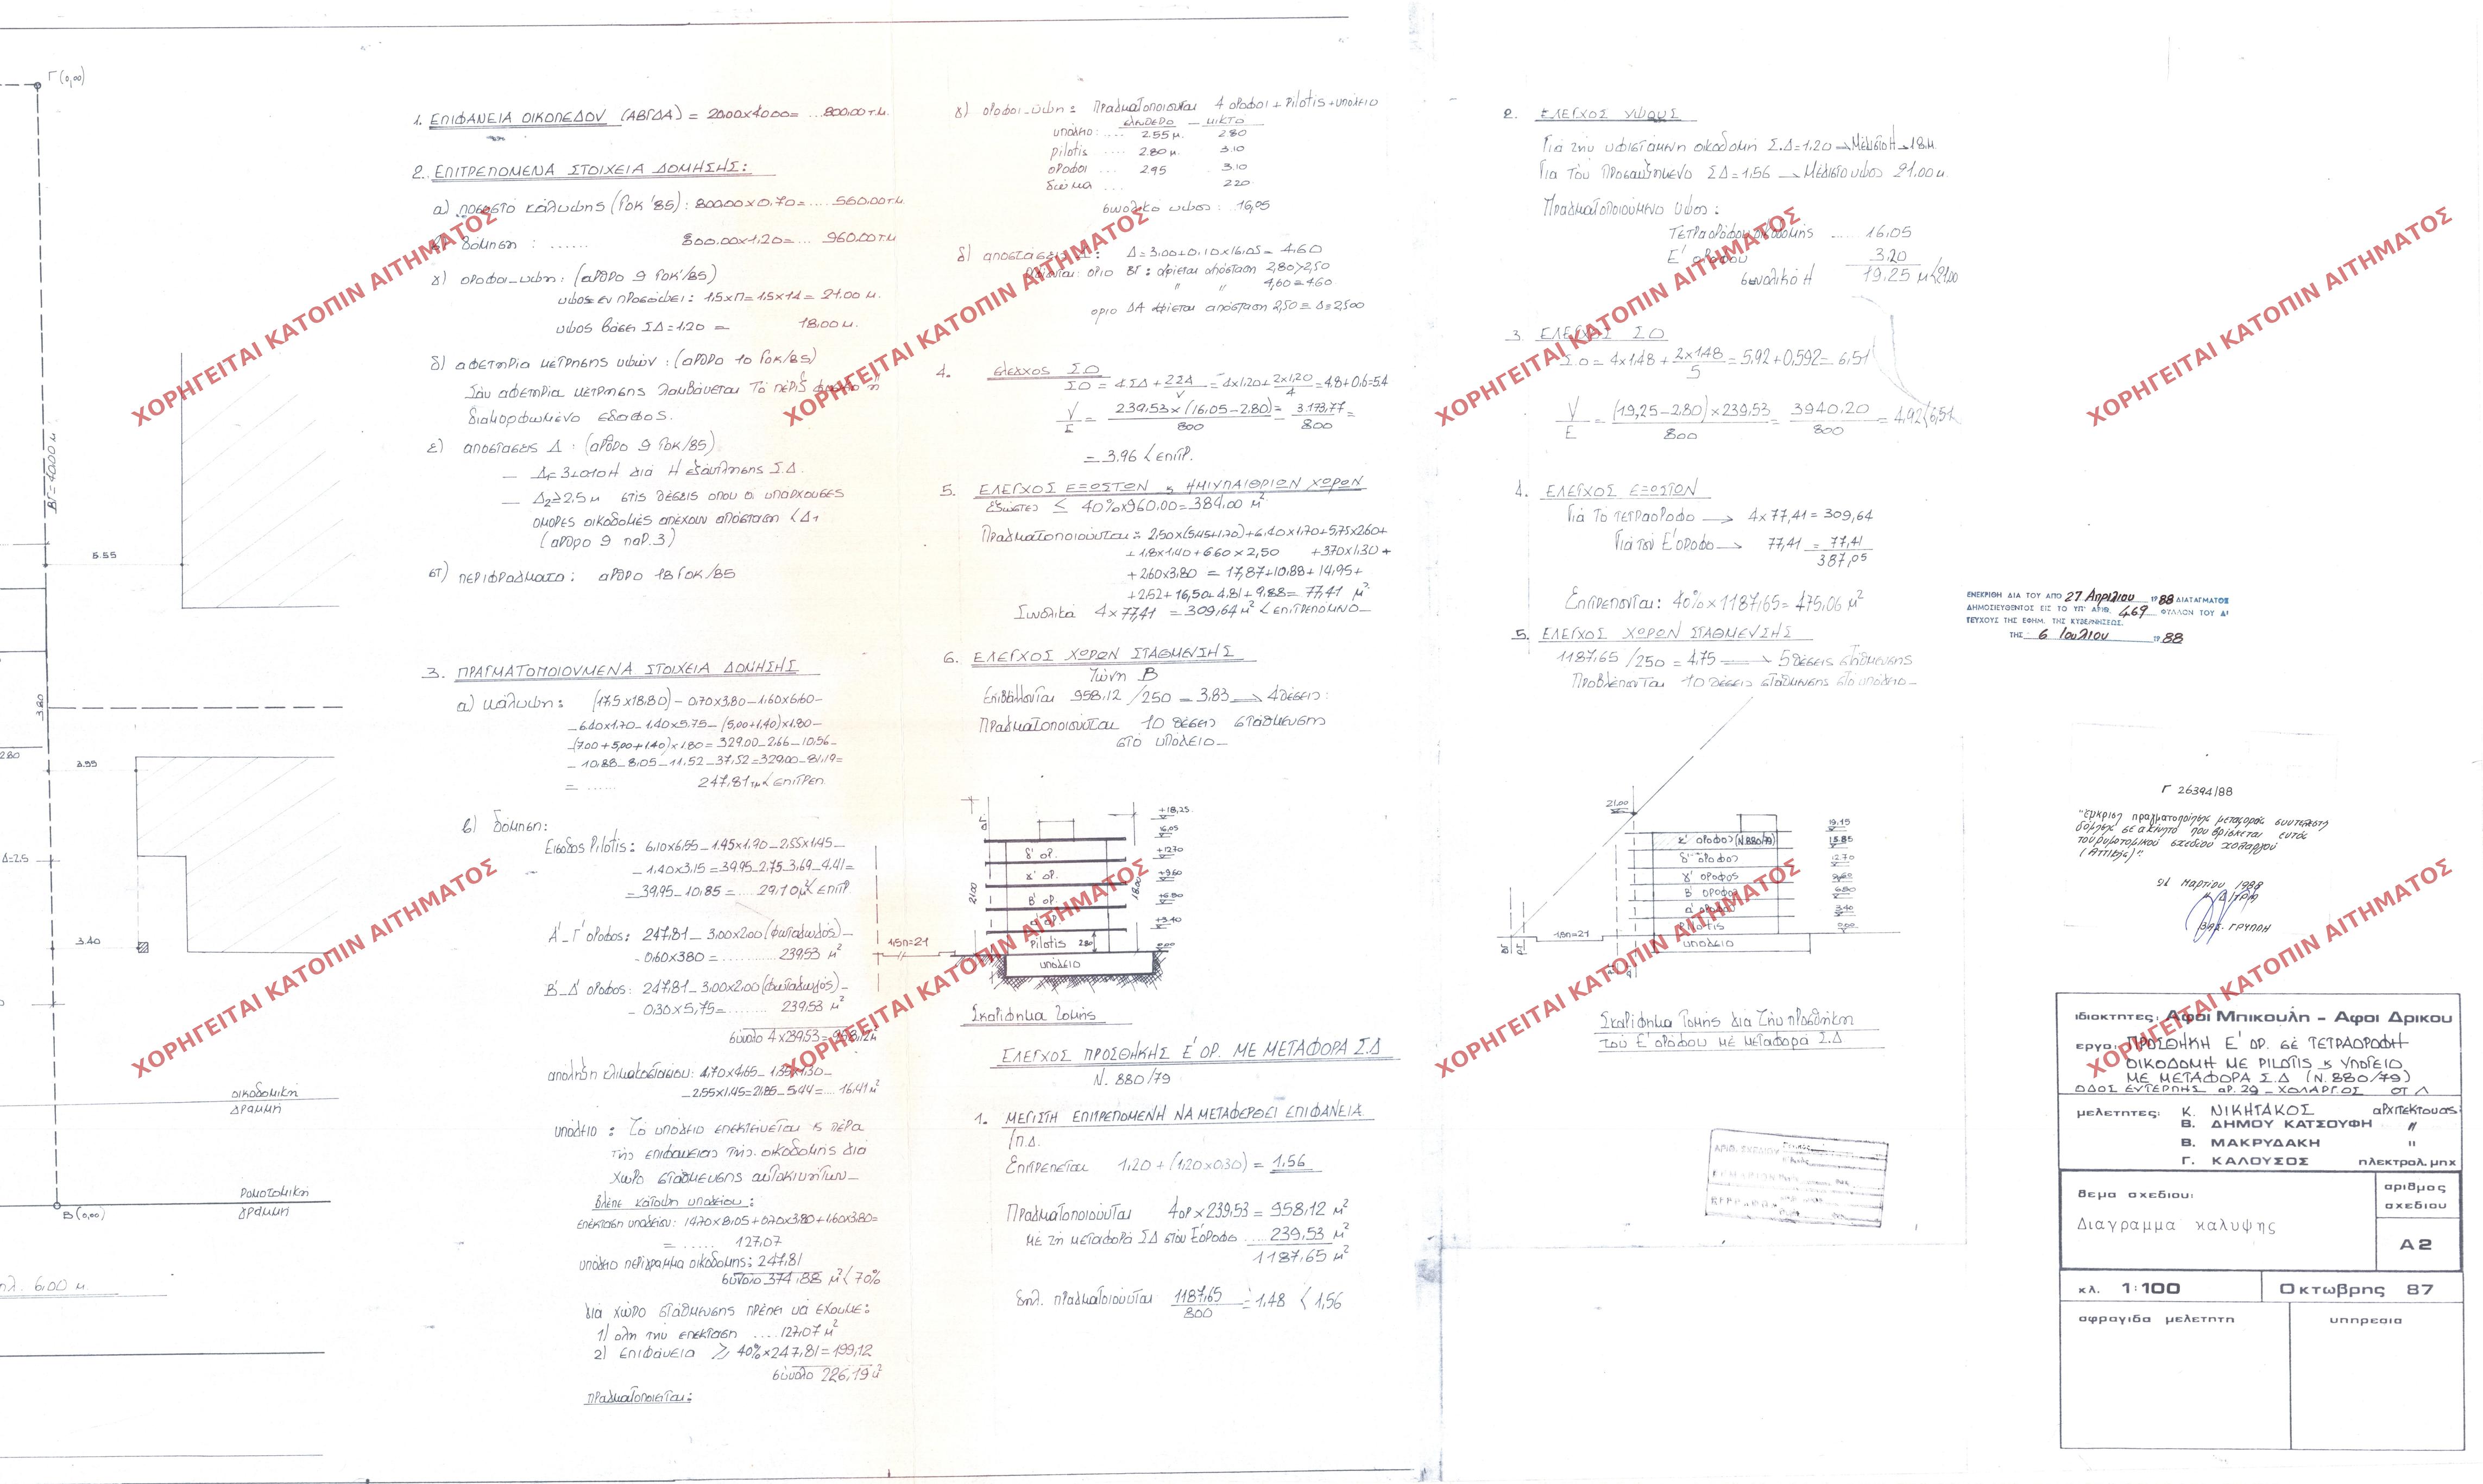 Γ (0,00)
ΒΓ=40.00 μ
5.55
3.80
2.80
3.55
Δ=2.5
3.40
οικοδομική
γραμμή
ρυμοτομική
γραμμή
Β (0,00)
πλ. 6.00 μ.
1. ΕΠΙΦΑΝΕΙΑ ΟΙΚΟΠΕΔΟΥ (ΑΒΓΔΑ) = 20.00x40.00= ...800.00 τ.μ.
2. ΕΠΙΤΡΕΠΟΜΕΝΑ ΣΤΟΙΧΕΙΑ ΔΟΜΗΣΗΣ:
α) ποσοστό κάλυψης (ΓΟΚ '85): 800.00x0,70=.... 560.00 τ.μ.
δόμηση : ...... 800.00x1.20=... 960.00 τ.μ
γ) οροφοι-υψη: (αρθρο 9 ΓΟΚ/85)
υψος εν προσόψει: 1.5xΠ=1.5x14= 21.00 μ.
υψος βάσει ΣΔ=1.20 = 18.00 μ.
δ) αφετηρία μέτρησης υψών: (αρθρο 10 ΓΟΚ/85)
Σάν αφετηρία μέτρησης λαμβάνεται τό πέριξ
διαμορφωμένο εδαφος.
ε) αποστάσεις Δ : (αρθρο 9 ΓΟΚ/85)
— Δ1=3+0.10Η διά Η εξάντλησης Σ.Δ.
— Δ2≥2.5 μ στίς θέσεις οπου οι υπάρχουσες
ομορες οικοδομές απέχουν απόσταση <Δ1
(αρθρο 9 παρ.3)
στ) περιφράγματα: αρθρο 18 ΓΟΚ/85
3. ΠΡΑΓΜΑΤΟΠΟΙΟΥΜΕΝΑ ΣΤΟΙΧΕΙΑ ΔΟΜΗΣΗΣ
α) κάλυψη: (17.5x18.80) - 0.70x3.80 - 1.60x6.60-
-6.40x1.70-1.40x5.75-(5,00+1.40)x1.80-
-(7.00+5,00+1.40)x1.80=329.00-2.66-10.56-
-10.88-8.05-11.52-37.52=329.00-81.19=
= ...... 247.81 τμ < ΕΠΙΤΡΕΠ.
β) δόμηση:
Είσοδος Pilotis: 6.10x6.55-1.45x1.90-2.55x1.45-
-1.40x3.15=39.95-2.75-3.69-4.41=
=39.95-10.85=....29.10 μ² < ΕΠΙΤΡ.
Α'-Γ' οροφος: 247.81-3.00x2.00 (φωταγωγός)-
-0.60x3.80 =.......... 239.53 μ²
Β'-Δ' οροφος: 247.81-3.00x2.00 (φωταγωγός)-
-0.30x5.75=........ 239.53 μ²
σύνολο 4x239.53=958.12 μ
απόληξη κλιμακοστασίου: 4.70x4.65-1.35x1.30-
-2.55x1.45=21.85-5.44=... 16.41 μ²
υπόγειο : Τό υπόγειο επεκτείνεται κ πέρα
τής επιφανείας τής οικοδομής διά
χώρο στάθμευσης αυτοκινήτων-
Βλέπε κάτοψη υπογείου:
επέκταση υπογείου: 14.70x8.05+0.70x3.80+1.60x3.80=
= ...... 127.07
υπόγειο περίγραμμα οικοδομής: 247.81
σύνολο 374.88 μ² < 70%
διά χώρο στάθμευσης πρέπει νά εχουμε:
1) ολη την επέκταση .... 127.07 μ²
2) επιφάνεια ≥ 40%x247.81=199.12
σύνολο 226.19 μ²
πραγματοποιείται:
γ) οροφοι-υψη: Πραγματοποιούνται 4 οροφοι + Pilotis + υπόγειο
ελεύθερο — μικτό
υπόγειο: .... 2.55 μ. 2.80
pilotis .... 2.80 μ. 3.10
οροφοι ... 2.95 3.10
δώμα ... 2.20
συνολικό υψος: 16,05
δ) αποστάσεις Δ: Δ=3.00+0.10x16.05= 4.60
οριο ΒΓ: αφίεται απόσταση 2,80>2,50
" " 4,60=4.60
οριο ΔΑ αφίεται απόσταση 2,50=Δ=2,500
4. ελεγχος ΣΟ
ΣΟ = 4ΣΔ + 2ΣΔ/ν = 4x1.20+ 2x1.20/4 =4.8+0.6=5.4
V/Ε = 239.53x(16.05-2.80)/800 = 3.173,77/800 =
= 3.96 < ΕΠΙΤΡ.
5. ΕΛΕΓΧΟΣ ΕΞΩΣΤΩΝ κ ΗΜΙΥΠΑΙΘΡΙΩΝ ΧΩΡΩΝ
Εξώστες ≤ 40%x960.00=384.00 μ²
Πραγματοποιούνται: 2.50x(5.45+1.70)+6.40x1.70+5.75x2.60+
+1.8x1.40+6.60x2,50 +3.70x1.30+
+2.60x3.80 = 17,87+10.88+14,95+
+2.52+16,50+4.81+9.88= 77.41 μ²
Συνολικά 4x77,41 = 309,64 μ² < επιτρεπόμενο-
6. ΕΛΕΓΧΟΣ ΧΩΡΩΝ ΣΤΑΘΜΕΥΣΗΣ
Ζώνη Β
Επιβάλλονται 958.12/250=3.83 → 4 θέσεις:
Πραγματοποιούνται 10 θέσεις στάθμευσης
στό υπόγειο-
+18,25
16,05
+12.70
+9.60
+6.50
+3.40
0.00
δ' ορ.
γ' ορ.
Β' ορ.
α' ορ.
Pilotis 2.80
υπόγειο
21.00
18.00
1.5π=21
Σκαρίφημα τομής
ΕΛΕΓΧΟΣ ΠΡΟΣΘΗΚΗΣ Ε' ΟΡ. ΜΕ ΜΕΤΑΦΟΡΑ Σ.Δ
Ν. 880/79
1. ΜΕΓΙΣΤΗ ΕΠΙΤΡΕΠΟΜΕΝΗ ΝΑ ΜΕΤΑΦΕΡΘΕΙ ΕΠΙΦΑΝΕΙΑ
Π.Δ.
Επιτρέπεται 1,20 + (1,20x0,30) = 1,56
Πραγματοποιούνται 4ορ x 239.53 = 958,12 μ²
Μέ τή μεταφορά ΣΔ στόν Ε'όροφο .... 239.53 μ²
1187.65 μ²
δηλ. πραγματοποιούνται 1187.65/800 = 1.48 < 1,56
2. ΕΛΕΓΧΟΣ ΥΨΟΥΣ
Γιά τήν υφισταμένη οικοδομή Σ.Δ=1.20 → Μέγιστο Η → 18 μ.
Γιά τόν προσαυξημένο ΣΔ=1,56 → Μέγιστο υψος 21.00 μ.
Πραγματοποιούμενο υψος:
Τετραορόφου οικοδομής ..... 16.05
Ε' ορόφου 3.20
συνολικό Η 19.25 μ<21.00
3. ΕΛΕΓΧΟΣ ΣΟ
Σ.Ο = 4x1.48 + 2x1.48/5 = 5.92+0.592= 6.51
V/Ε = (19,25-2.80)x239.53/800 = 3940.20/800 = 4.92<6,51
4. ΕΛΕΓΧΟΣ ΕΞΩΣΤΩΝ
Γιά τό τετραόροφο → 4x77,41=309,64
Γιά τόν Ε' όροφο → 77,41 = 77,41
387,05
Επιτρέπονται: 40%x1187,65=475,06 μ²
5. ΕΛΕΓΧΟΣ ΧΩΡΩΝ ΣΤΑΘΜΕΥΣΗΣ
1187.65/250 = 4,75 → 5 θέσεις στάθμευσης
Προβλέπονται 10 θέσεις στάθμευσης στό υπόγειο-
21.00
ε' οροφος (Ν.880/79)
δ' οροφος
γ' οροφος
Β' οροφος
α' οροφος
Pilotis
υπόγειο
19.15
15.85
12.70
9,60
6.50
3.40
0,00
1.5π=21
Σκαρίφημα τομής διά τήν προσθήκη
τού Ε' ορόφου μέ μεταφορά Σ.Δ
ΑΡΙΘ. ΣΧΕΔΙΟΥ
ΕΝΕΚΡΙΘΗ ΔΙΑ ΤΟΥ ΑΠΟ 27 Απριλίου 1988 ΔΙΑΤΑΓΜΑΤΟΣ
ΔΗΜΟΣΙΕΥΘΕΝΤΟΣ ΕΙΣ ΤΟ ΥΠ' ΑΡΙΘ. 469 ΦΥΛΛΟΝ ΤΟΥ Δ'
ΤΕΥΧΟΥΣ ΤΗΣ ΕΦΗΜ. ΤΗΣ ΚΥΒΕΡΝΗΣΕΩΣ.
ΤΗΣ 6 Ιουλίου 1988
Γ 26394/88
"Έγκριση πραγματοποίησης μεταφοράς συντελεστή
δόμησης σε ακίνητο που βρίσκεται εντός
του ρυμοτομικού σχεδίου Χολαργού
(Αττικής)"
21 Μαρτίου 1988
ΓΡΥΠΠΗ
ιδιοκτητες: Αφοι Μπικουλη - Αφοι Δρικου
εργο: ΠΡΟΣΘΗΚΗ Ε' ΟΡ. σέ ΤΕΤΡΑΟΡΟΦΗ
ΟΙΚΟΔΟΜΗ ΜΕ PILOTIS κ ΥΠΟΓΕΙΟ
ΜΕ ΜΕΤΑΦΟΡΑ Σ.Δ (Ν. 880/79)
ΟΔΟΣ ΕΥΤΕΡΠΗΣ αρ. 29 - ΧΟΛΑΡΓΟΣ ΟΤ Λ
μελετητες: Κ. ΝΙΚΗΤΑΚΟΣ αρχιτεκτονας
Β. ΔΗΜΟΥ ΚΑΤΣΟΥΦΗ "
Β. ΜΑΚΡΥΔΑΚΗ "
Γ. ΚΑΛΟΥΣΟΣ ηλεκτρολ. μηχ
θεμα σχεδιου:
Διαγραμμα καλυψης
αριθμος
σχεδιου
Α2
κλ. 1:100
Οκτωβρης 87
σφραγιδα μελετητη
υπηρεσια
ΧΟΡΗΓΕΙΤΑΙ ΚΑΤΟΠΙΝ ΑΙΤΗΜΑΤΟΣ
ΧΟΡΗΓΕΙΤΑΙ ΚΑΤΟΠΙΝ ΑΙΤΗΜΑΤΟΣ
ΧΟΡΗΓΕΙΤΑΙ ΚΑΤΟΠΙΝ ΑΙΤΗΜΑΤΟΣ
ΧΟΡΗΓΕΙΤΑΙ ΚΑΤΟΠΙΝ ΑΙΤΗΜΑΤΟΣ
ΧΟΡΗΓΕΙΤΑΙ ΚΑΤΟΠΙΝ ΑΙΤΗΜΑΤΟΣ
ΧΟΡΗΓΕΙΤΑΙ ΚΑΤΟΠΙΝ ΑΙΤΗΜΑΤΟΣ
ΧΟΡΗΓΕΙΤΑΙ ΚΑΤΟΠΙΝ ΑΙΤΗΜΑΤΟΣ
ΧΟΡΗΓΕΙΤΑΙ ΚΑΤΟΠΙΝ ΑΙΤΗΜΑΤΟΣ